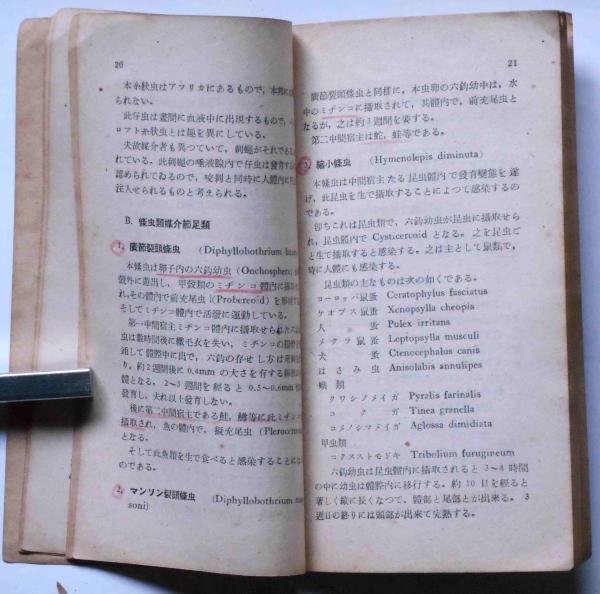 20
本糸狀虫はアフリカにあるもので,
られない。
此仔虫は晝間に血液中に出現するもので,
ロフト糸狀虫とは趣を異にしている。
夫故媒介者も異つていて,刺蝿がそれであ
れている。此刺蝿の唾液腺内で仔虫は發育す
認められてゐるので,咬刺と同時に人體内に
注入せられるものと考えられる。
B. 條虫類媒介節足類
1. 廣節裂頭條虫 (Diphyllobothrium
本條虫は卵子内の六鈎幼虫 (Onchosphere
殼外に遊出し,甲殼類のミヂンコ體内に攝取
れ,その體内で前充尾虫 (Procercoid) を
そしてミヂンコ體内で活潑に運動している。
第一中間宿主ミヂンコ體内に攝取せられた六
虫は數時間後に纖毛衣を失い,ミヂンコの腸管
通して體腔中に出で,六鈎の存せし方は
り,約2週間後に 0.4mm の大さを有する
體となる。2~3 週間を經ると 0.5~0.6mm
發育し,夫れ以上發育しない。
後に第二中間宿主である鮭,鱒等に此ミヂン
攝取され,魚の體内で,擬充尾虫 (Plerocer
となる。
そして此魚類を生で食べると感染することに
のである。
2. マンソン裂頭條虫 (Diphyllobothrium man
soni)
21
廣節裂頭條虫と同樣に,本虫卵の六鈎幼虫は,水
中のミヂンコに攝取されて,其體内で,前充尾虫と
なるが,之は約3週間を要する。
第二中間宿主は蛇,蛙等である。
3. 縮小條虫 (Hymenolepis diminuta)
本條虫は中間宿主たる昆虫體内で發育變態を遂
げ,此昆虫を生で攝取することによつて感染するの
である。
卽ちこれは昆虫類で,六鈎幼虫が昆虫に攝取せら
れ,昆虫體内で Cysticercoid となる。之を昆虫ご
と生で攝取すると感染する。之は主として鼠類で,
時に人體にも感染する。
昆虫類の主なものは次の如くである。
ヨーロッパ鼠蚤 Ceratophylus fasciatus
ケオプス鼠蚤 Xenopsylla cheopis
人蚤 Pulex irritans
メクラ鼠蚤 Leptopsylla musculi
犬蚤 Ctenocephalus canis
はさみ虫 Anisolabis annulipes
蛾類
クワシノメイガ Pyralis farinalis
コクガ Tinea granella
コメノシマメイガ Aglossa dimidiata
甲虫類
コクヌストモドキ Tribolium furugineum
六鈎幼虫は昆虫體内に攝取されると 3~4 時間
の中に幼虫は體腔内に移行する。約 10 日を經ると
著しく縱に長くなつて,體部と尾部とが出來る。3
週日の終りには頭部が出來て完熟する。